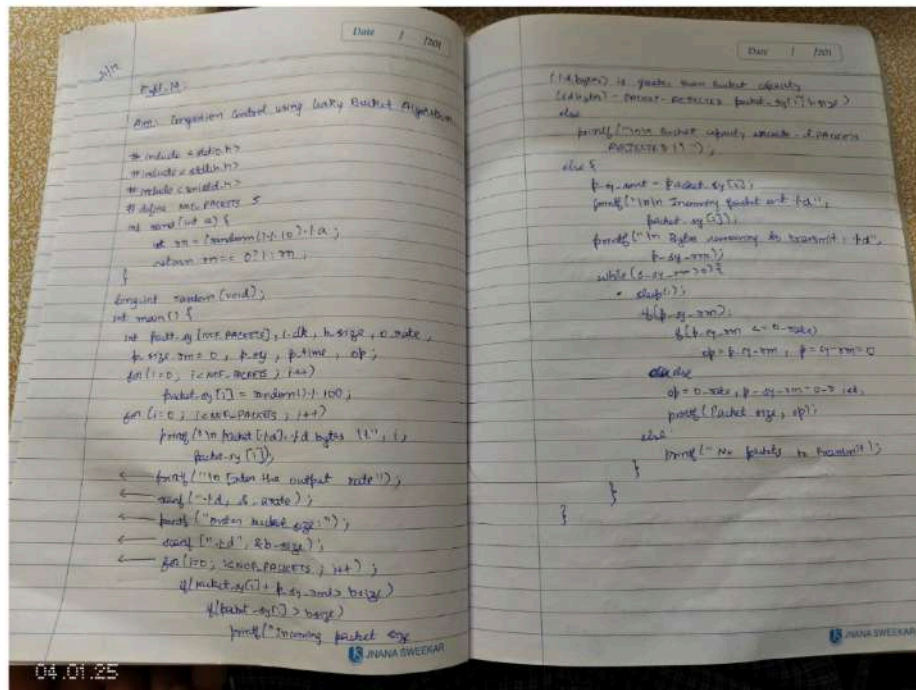 Date / /201
Aim: Congestion Control using Leaky Bucket Algorithm
# include <stdio.h>
# include <stdlib.h>
# include <unistd.h>
# define NOF_PACKETS 5
int rand(int a) {
int rn = (random() % 10) % a;
return rn == 0 ? 1 : rn;
}
long int random(void);
int main() {
int packet_sy[NOF_PACKETS], i, clk, b_size, o_rate,
p_size_rm = 0, p_sy, p_time, op;
for(i=0; i<NOF_PACKETS; i++)
packet_sy[i] = random() % 100;
for (i=0; i<NOF_PACKETS; i++)
printf("\n packet[%d]: %d bytes \t", i,
packet_sy[i]);
printf("\n Enter the output rate");
scanf("%d", & orate);
printf("enter bucket size:");
scanf("%d", &b-size);
for(i=0; i<NOF_PACKETS; i++);
if(packet_sy[i] + p_sy_rm > bsize)
if(packet_sy[i] > bsize)
printf("Incoming packet size
JNANA SWEEKAR
Date / /201
(%d bytes) is greater than bucket capacity
(%d bytes) - PACKET REJECTED packet_sy[i], bsize)
else
printf("\n\n Bucket capacity exceeded - PACKETS
REJECTED!!");
else {
p_sy_rm += packet_sy[i];
printf("\n\n Incoming packet size: %d",
packet_sy[i]);
printf("\n Bytes remaining to transmit: %d",
p_sy_rm);
while(p_sy_rm>0){
sleep(1);
if(p_sy_rm)
if(p_sy_rm <= o-rate)
op = p_sy-rm, p_sy-rm=0
else
op = o_rate, p_sy-rm
printf(Packet size, op);
else
printf("No packets to transmit);
}
}
}
JNANA SWEEKAR
04.01.25